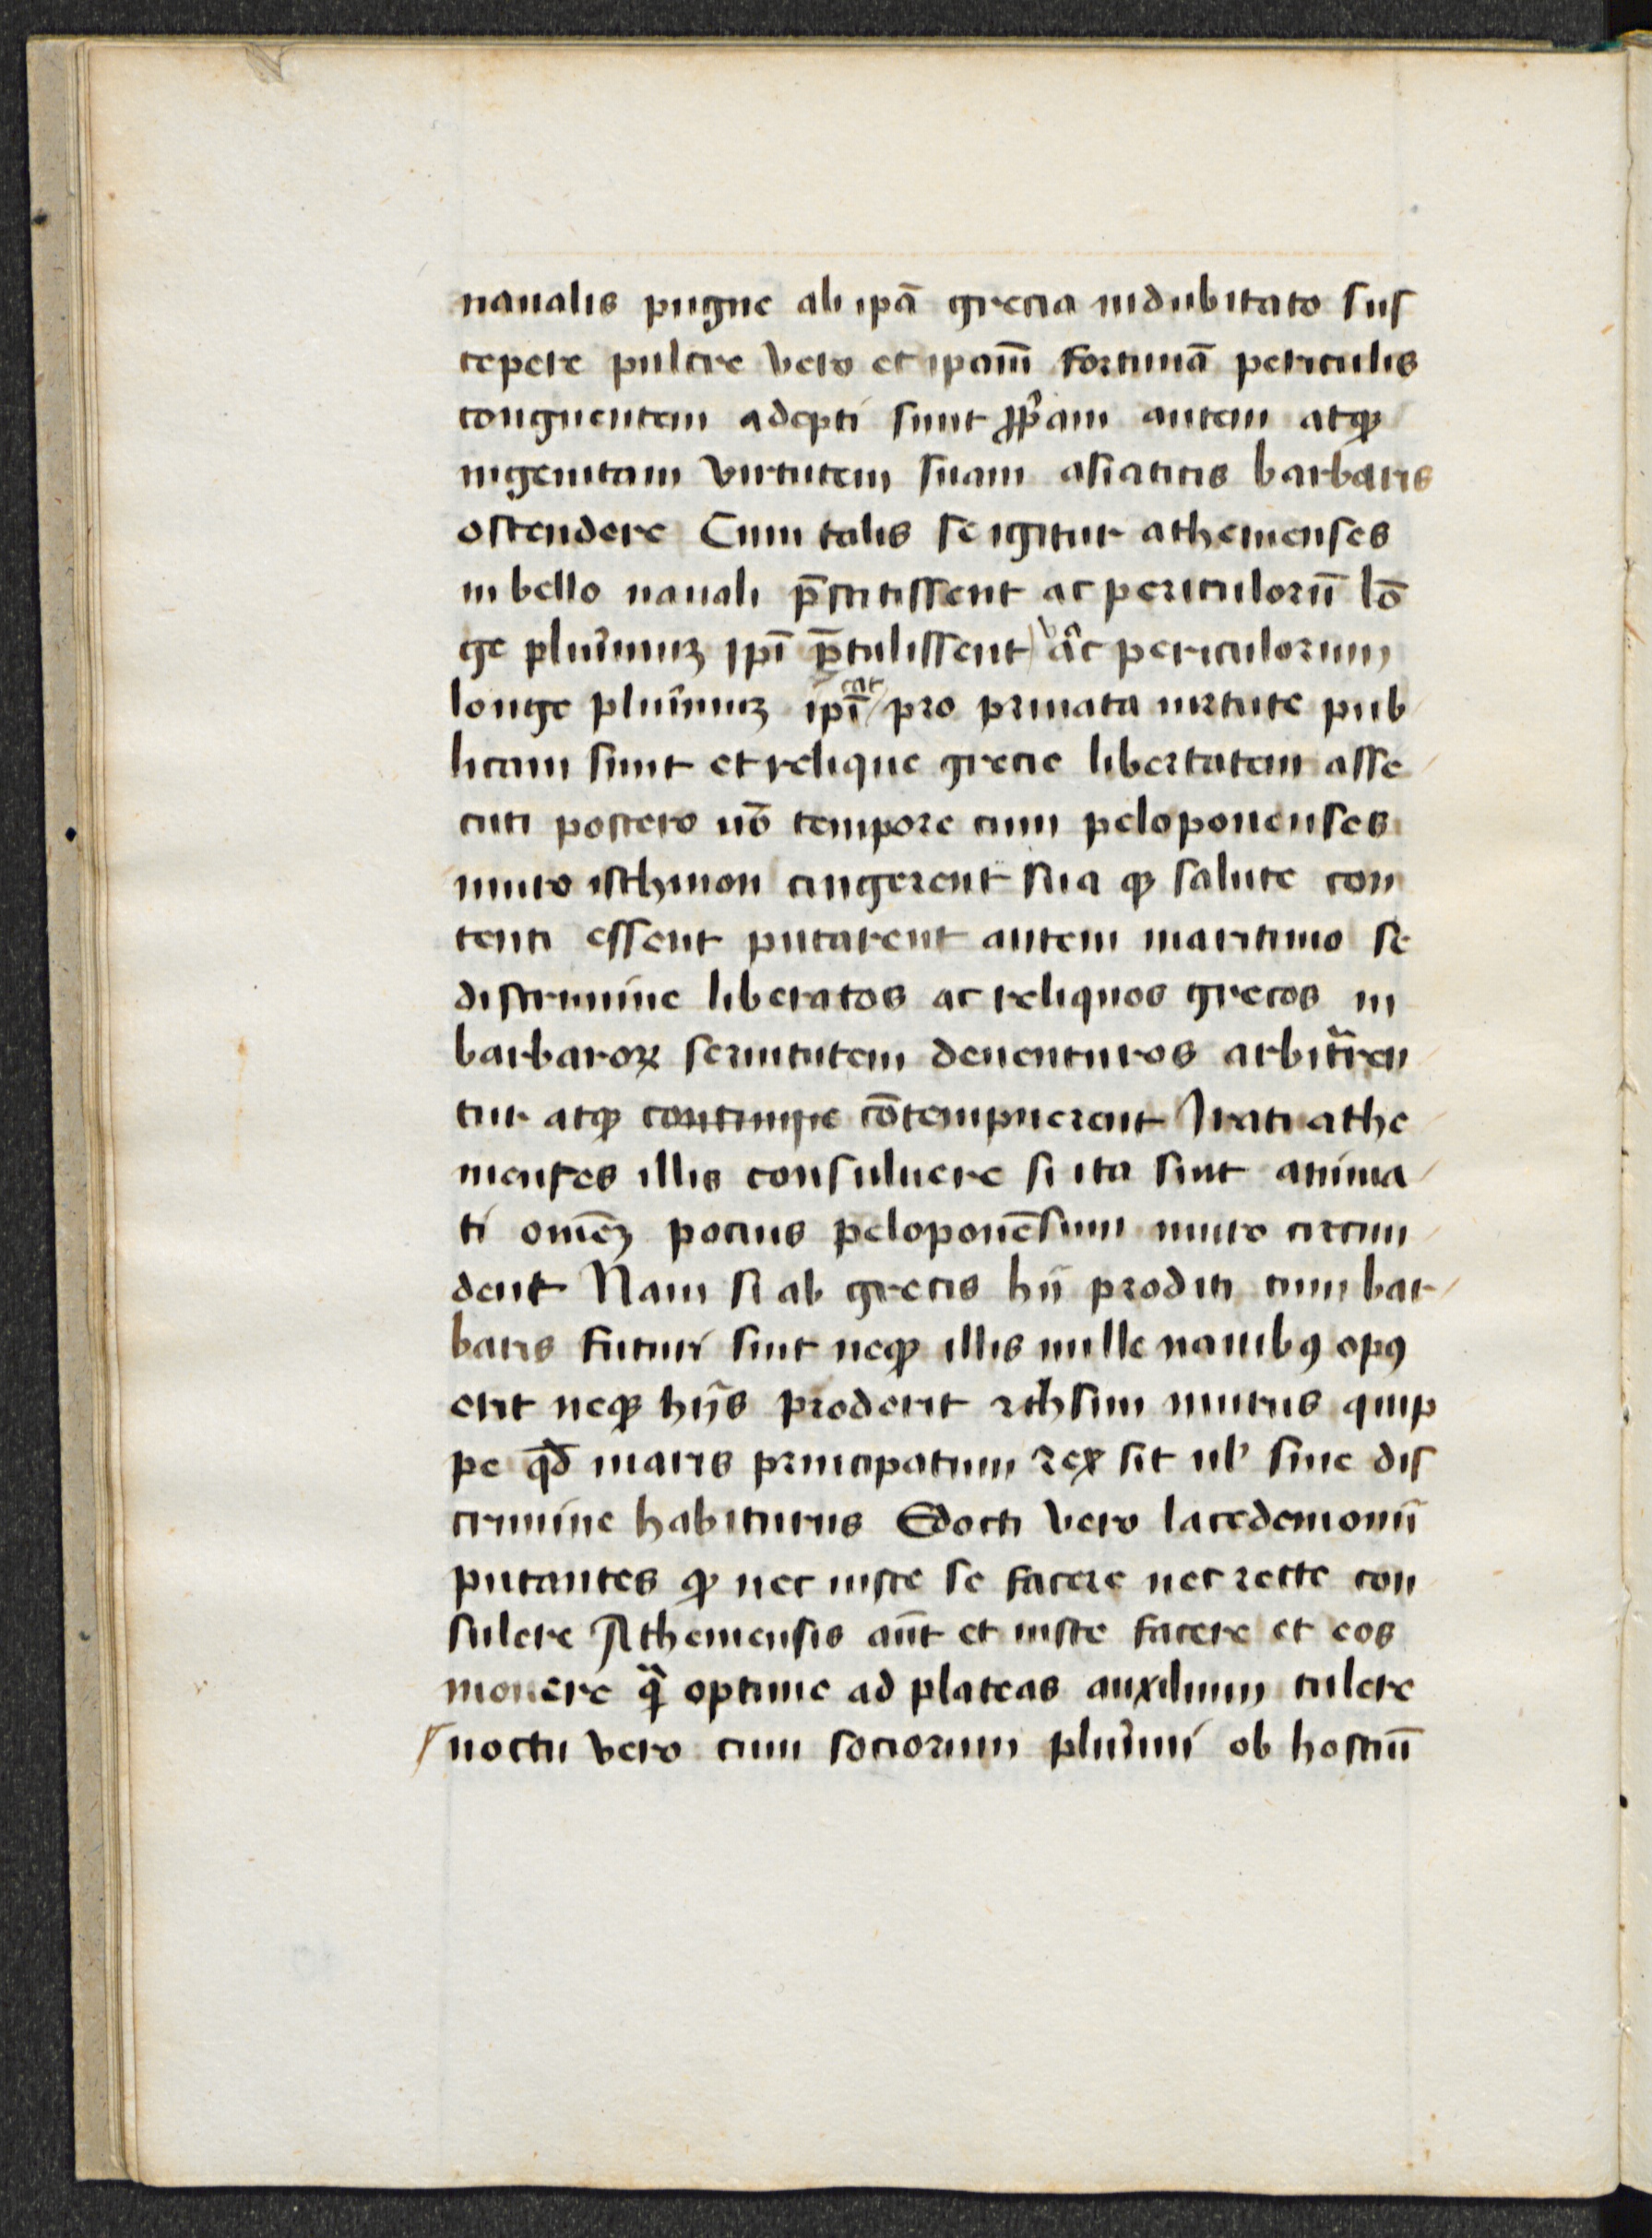 naualis pugne ab ipā grecia indubitato sus
cepere pulcre vero et ipam̄ fortunā periculis
congruentem adepti sunt ꝓp̃am autem atqꝫ
ingenitam virtutem suam asiaticis barbaris
ostendere Cum talis se igitur athenienses
in bello nauali p̄stitissent ac periculorū lō
ge plur̃imuꝫ ipī p̄tulissent ac periculorum
longe plur̃imuꝫ ipī at pro priuata uirtute pub
licam sunt et relique grecie libertatem asse
cuti postero uō tempore cum peloponenses
muro isthmon cingerent sua qꝫ salute con
tenti essent putarent autem maritimo se
discrimine liberatos ac reliquos grecos in
barbaroꝝ seruitutem deuenturos arbitr̃aren
tur atqꝫ continue cōtempnerent Irati athe
nienses illis consuluere si ita sint anima
ti omēꝫ pocius peloponēsum muro circun
dent Nam si ab grecis hij proditi cum bar
baris futuri sint neqꝫ illis mille nauibꝰ opꝰ
erit neqꝫ hijs proderit rthsim murus quip
pe qd̄ maris principatum rex sit ul' sine dis
crimine habiturus Edocti vero lacedemonij
putantes qꝫ nec iuste se facere nec recte con
sulere Atheniensis aūt et iuste facere et eos
monere qͣ optime ad plateas auxilium tulere
noctu vero cum sociorum plur̃imi ob hostiū